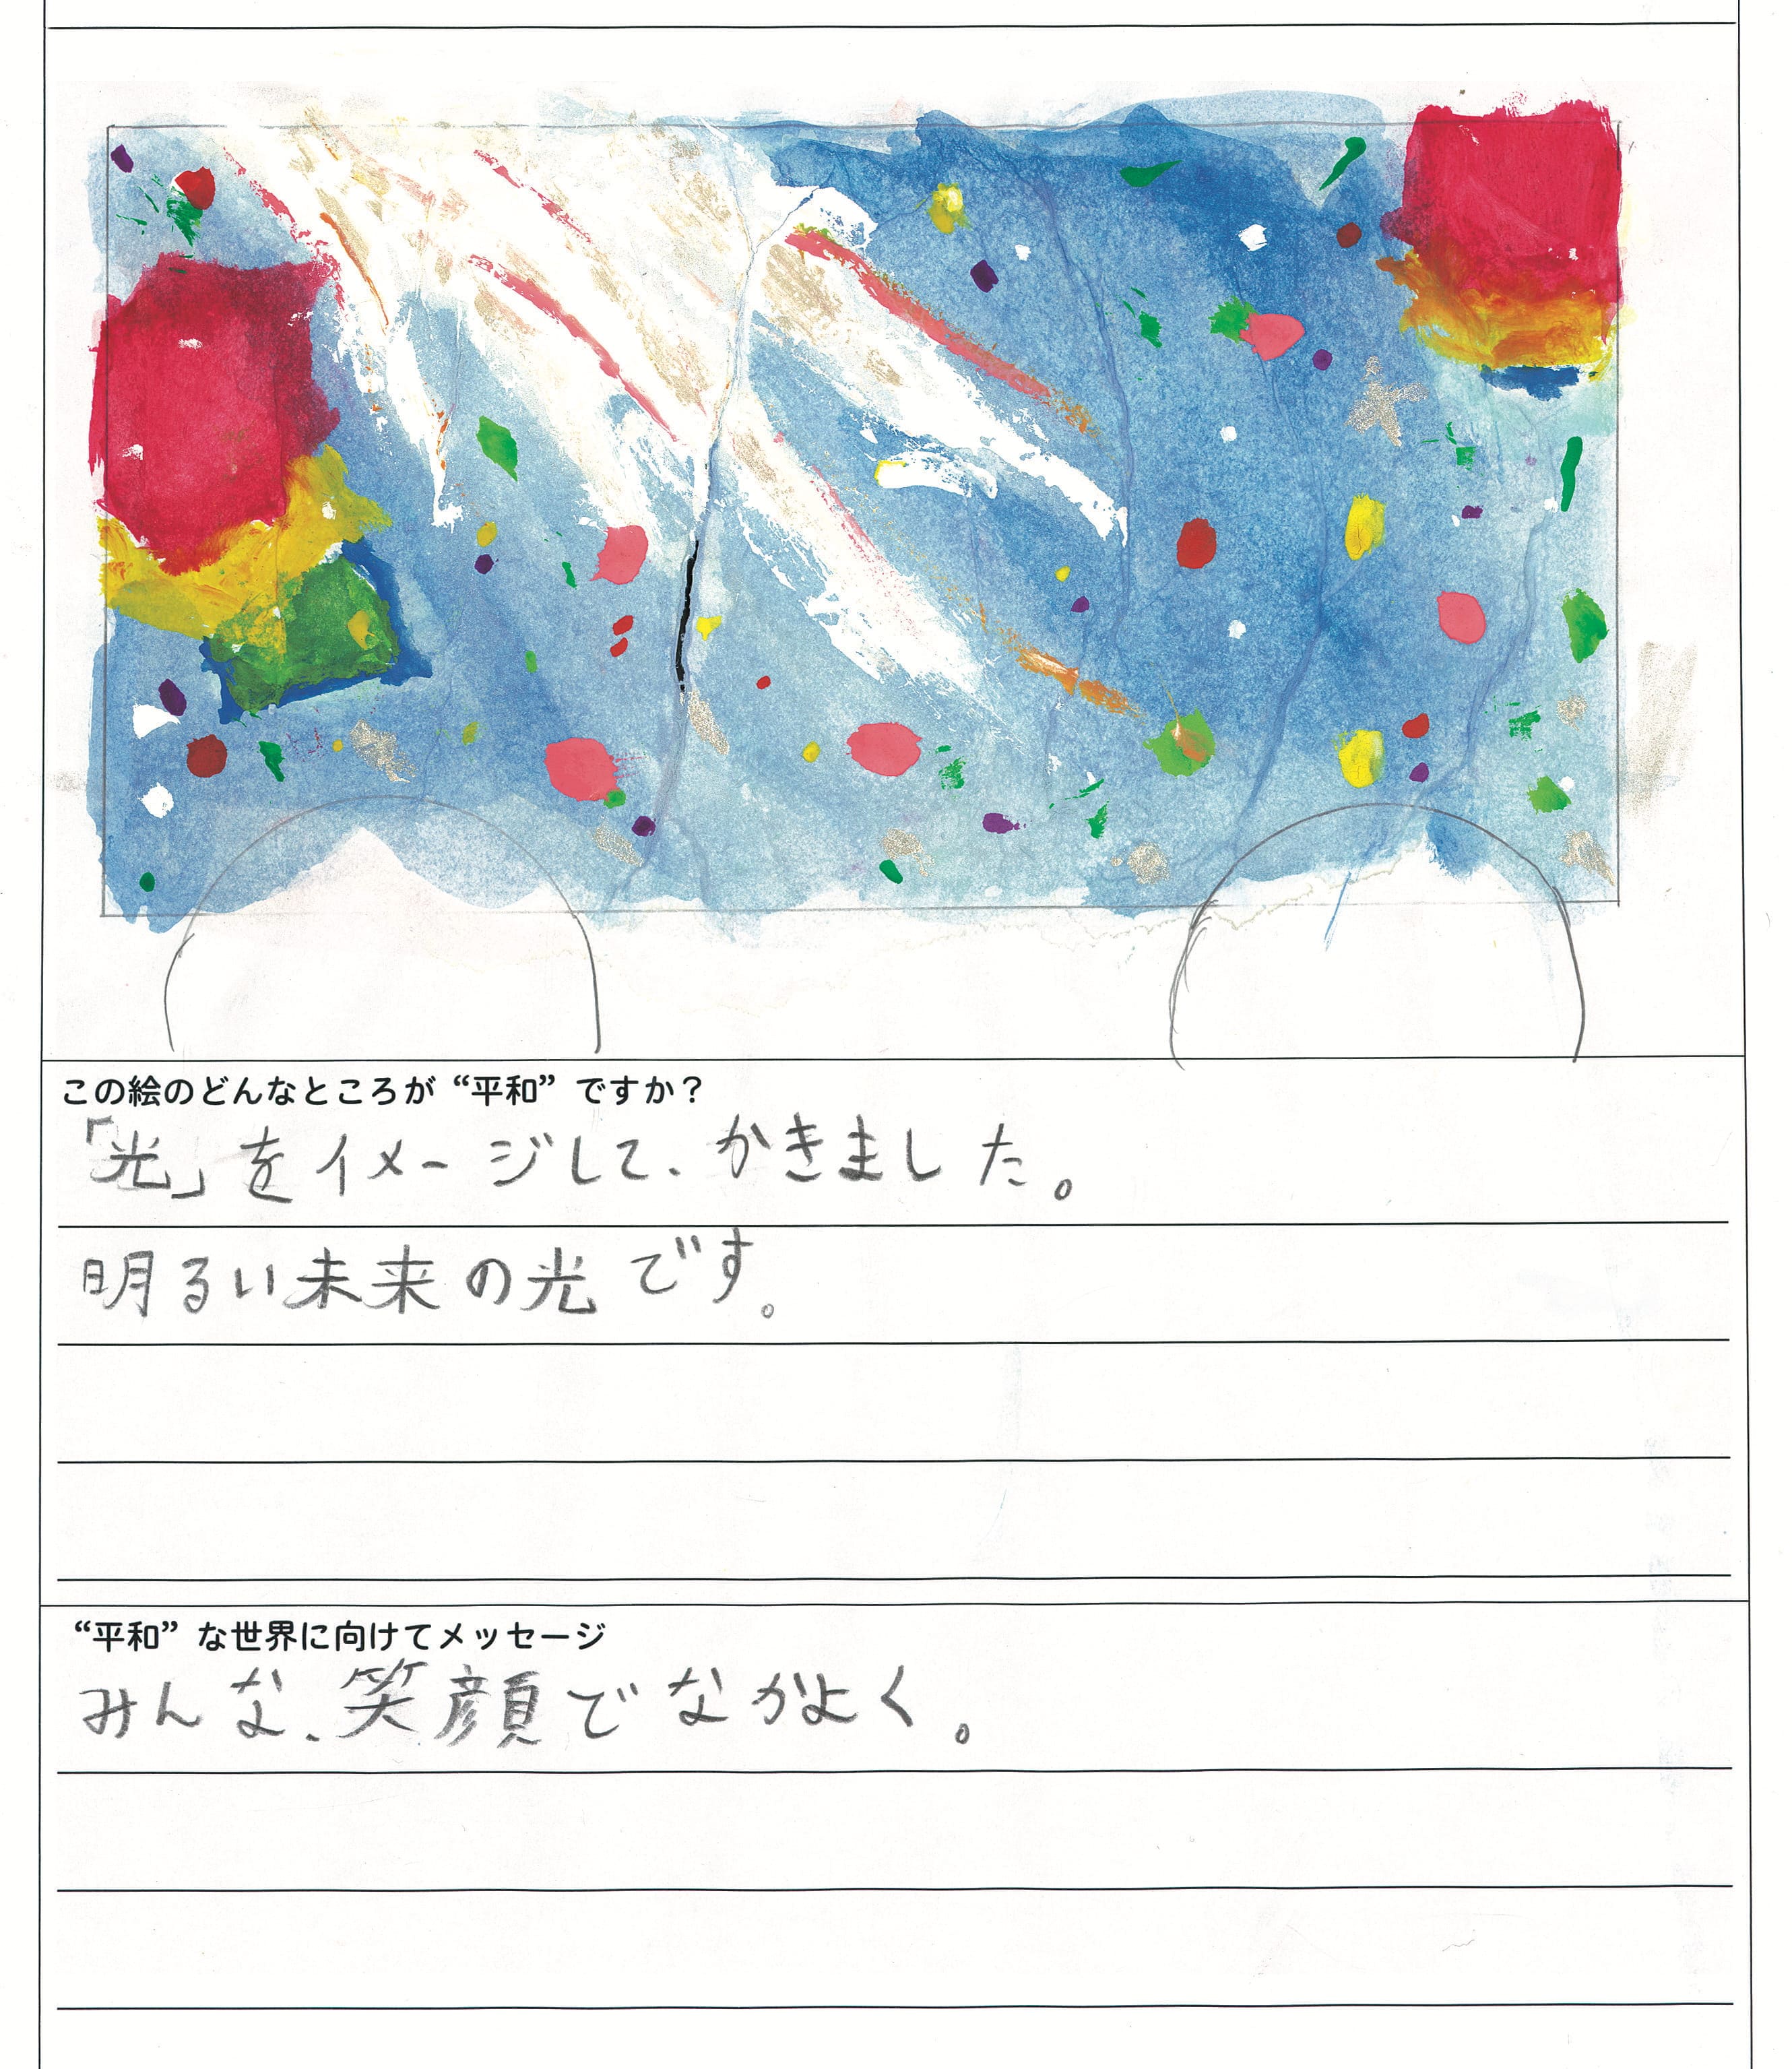 この絵のどんなところが“平和”ですか？
「光」をイメージして、かきました。
明るい未来の光です。
“平和”な世界に向けてメッセージ
みんな、笑顔でなかよく。